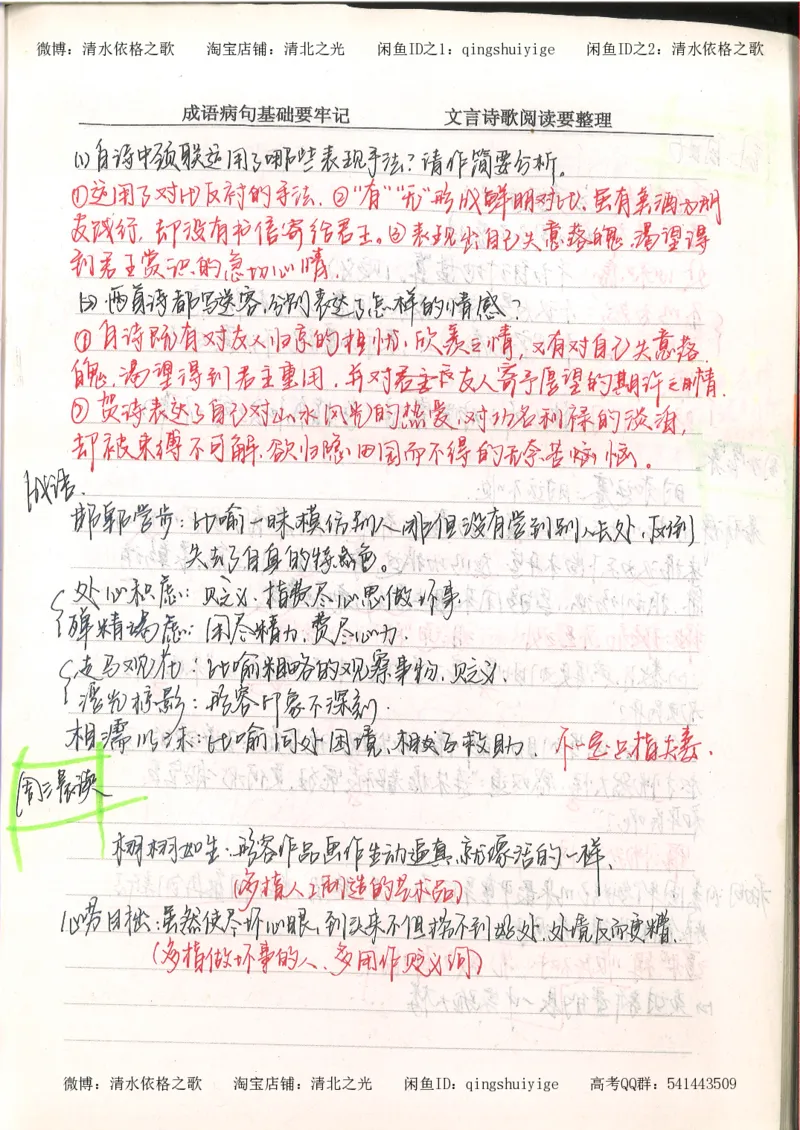 微博：清水依格之歌 淘宝店铺：清北之光 闲鱼ID之1：qingshuiyige 闲鱼ID之2：清水依格之歌
成语病句基础要牢记 文言诗歌阅读要整理
(1)白诗中颈联运用了哪些表现手法？请作简要分析。
①运用了对比反衬的手法.②"有""无"形成鲜明对比.虽有美酒为朋
友践行,却没有书信寄给君王。③表现出自己失意落魄,渴望得
到君王赏识的急切心情.
(2)两首诗都写送客,分别表达了怎样的情感？
①白诗既有对友人归京的担忧,欣羡之情,又有对自己失意落
魄,渴望得到君主重用,并对君主及友人寄予厚望的期许之情.
②贺诗表达了自己对山水风光的热爱,对功名利禄的淡泊,
却被束缚不可解,欲归隐田园而不得的无奈苦痛恼。
成语.
邯郸学步:比喻一味模仿别人,非但没有学到别人长处,反倒
失去了自身的特色。
处心积虑:贬义,指费尽心思做坏事.
殚精竭虑:用尽精力,费尽心力.
走马观花:比喻粗略的观察事物,贬义.
浮光掠影:形容印象不深刻.
相濡以沫:比喻同处困境,相互救助. 不一定只指夫妻.
周三晨读
栩栩如生:形容作品画作生动逼真,就像活的一样.
(多指人工制造的艺术品)
心劳日拙:虽然使尽坏心眼,到头来不但捞不到好处,处境反而更糟.
(多指做坏事的人,多用作贬义词)
微博：清水依格之歌 淘宝店铺：清北之光 闲鱼ID：qingshuiyige 高考QQ群：541443509